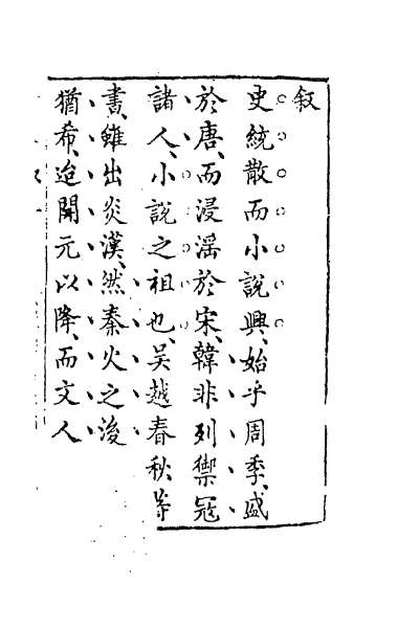 叙
史統散而小說興、始乎周季、盛
於唐、而浸淫於宋、韓非列禦冦
諸人、小說之祖也、吴越春秋等
書、雖出炎漢、然秦火之後、
猶希、迨開元以降、而文人